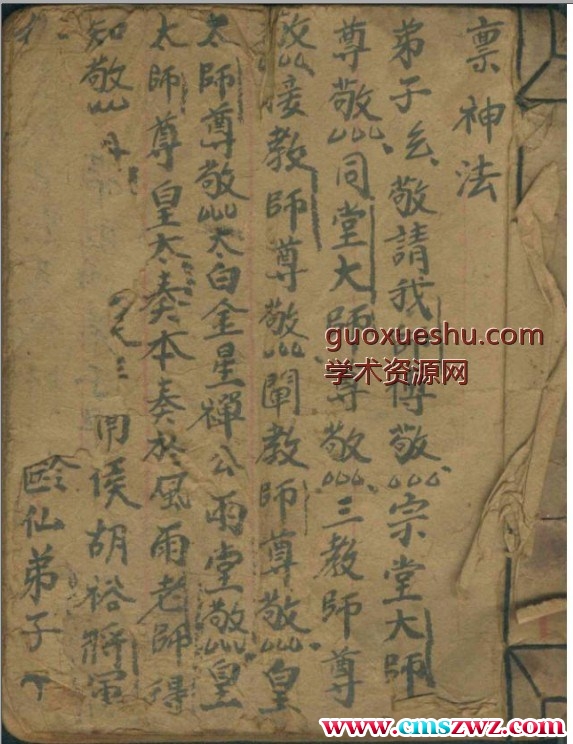 禀神法
弟子 敬請我師傅敬 宗堂大師
尊敬 同堂大師尊敬 三教師尊
敬 接教師尊敬 闡教師尊敬 皇
太師尊敬 太白金星禪公雨堂敬 皇
太師尊皇太奏本奏於風雨老師得
知敬
侯胡裕將軍
仙弟子
guoxueshu.com
学术资源网
www.cmszwz.com